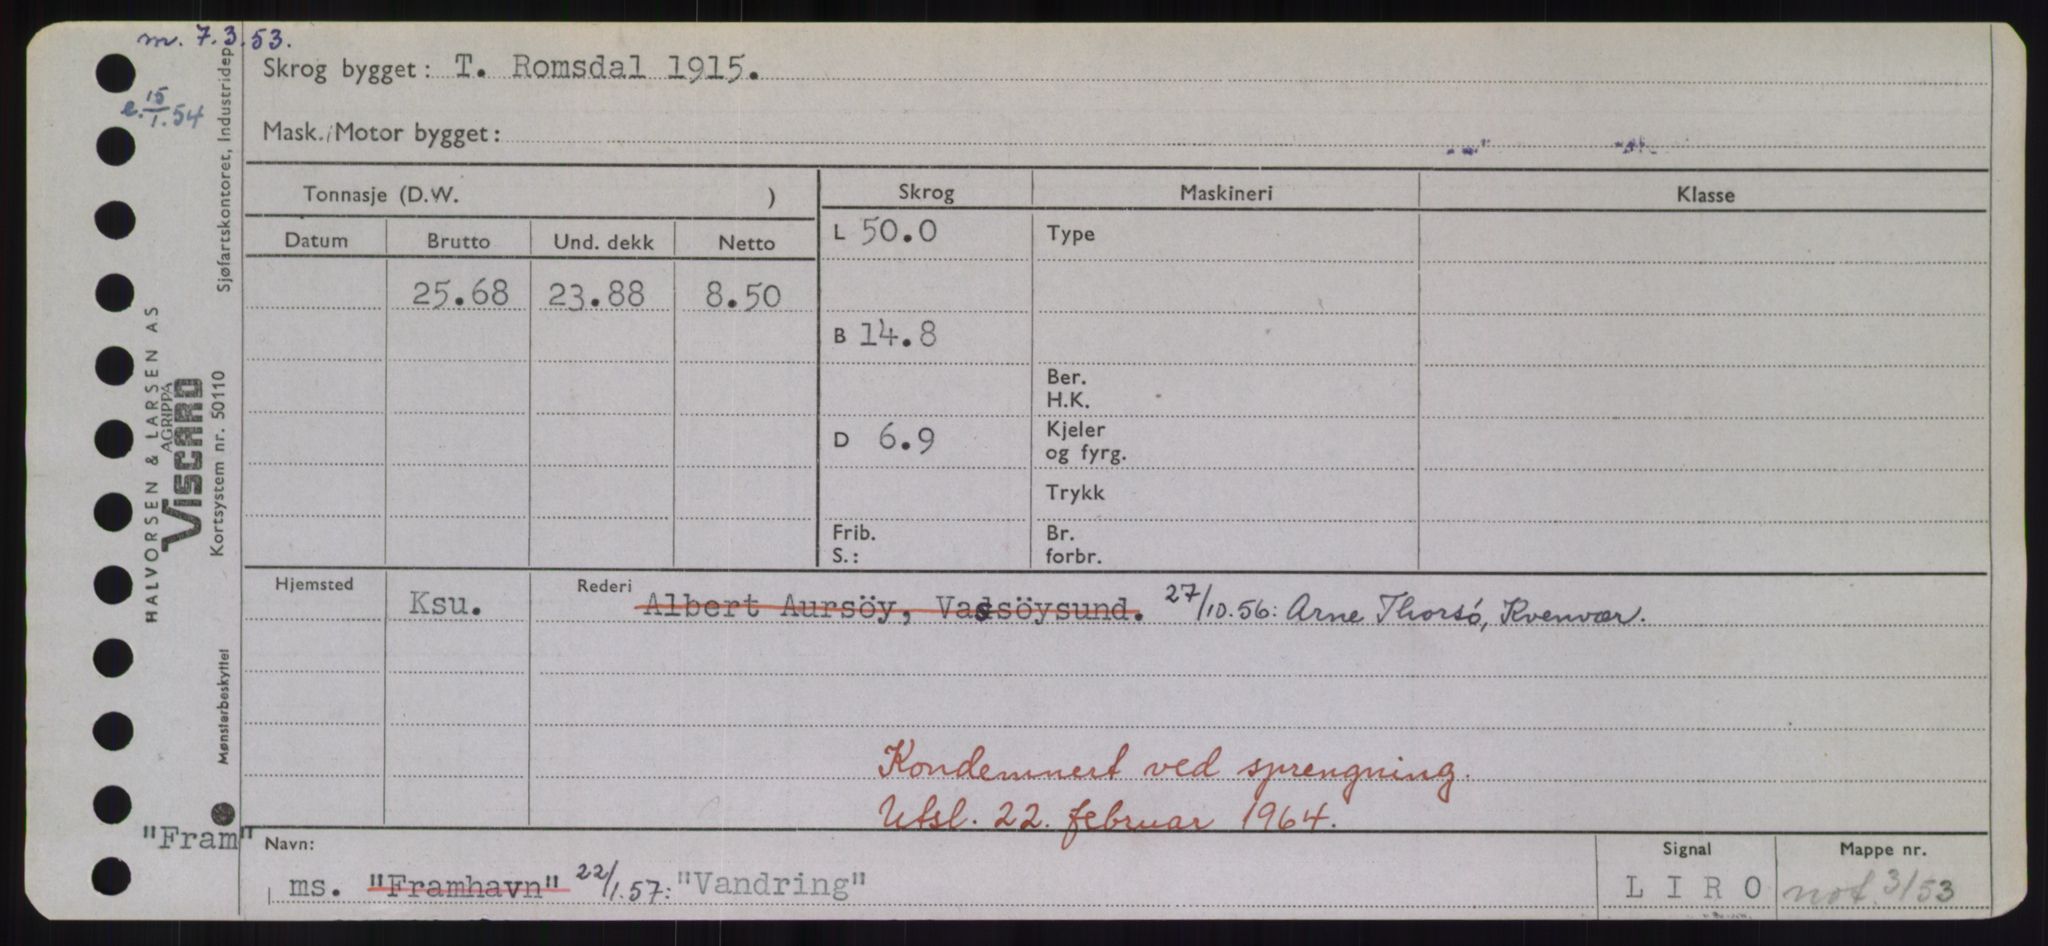 m. 7.3.53.
e. 15/1.54
Skrog bygget: T. Romsdal 1915.
Mask./Motor bygget:
Tonnasje (D.W. )
Skrog
Maskineri
Klasse
Datum Brutto Und. dekk Netto
L 50.0
Type
25.68 23.88 8.50
B 14.8
Ber.
H.K.
D 6.9
Kjeler
og fyrg.
Trykk
Frib.
S.:
Br.
forbr.
Hjemsted Ksu. Rederi Albert Aursöy, Vadsöysund. 27/10.56: Arne Thorsö, Kvenvær.
Kondemnert ved sprengning.
Utsl. 22. februar 1964.
"Fram"
Navn:
ms. "Framhavn" 22/1.57: "Vandring"
Signal
L I R O
Mappe nr.
not. 3/53
HALVORSEN & LARSEN AS
AGRIPPA
VISCARD
Kortsystem nr. 50110
Sjøfartskontoret, Industridep
Mønsterbeskyttet